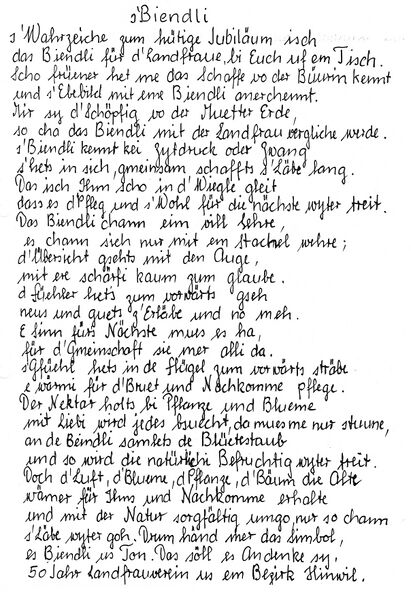 s'Biendli
s'Wahrzeiche zum hütige Jubiläum isch
das Biendli für d'Landfraue, bi Euch uf em Tisch.
Scho früener het me das Schaffe vo der Büürin kennt
und s'Ebebild mit eme Biendli anerchennt.
Mir sy d'Schöpfig vo der Muetter Erde,
so cha das Biendli mit der Landfrau vergliche werde.
s'Biendli kennt kei Zytdruck oder Zwang
s'hets in sich, gmeinsam schaffts s'Läbe lang.
Das isch Ihm scho in d'Wiegle gleit
dass es d'Pfleg und s'Wohl für die nächste wyter treit.
Das Biendli chann eim vill Lehre,
es chann sich nur mit em Stachel wehre;
d'Übersicht gsehts mit den Auge,
mit ere schärfi kaum zum glaube.
d Füehler hets zum vorwärts gseh
neus und guets z'Erläbe und no meh.
E Sinn fürs Nächste mues es ha,
für d'Gmeinschaft sie mer alli da.
s'Gfüehl hets in de Flügel zum vorwärts sträbe
e wärmi für d'Bruet und Nachkomme pflege.
Der Nektar holts bi Pflanze und Blueme
mit Liebi wird jedes bsuecht, da mues me nur stuune,
an de Beindli samlets de Blüetestaub
und so wird die natürlichi Befruchtig wyter treit.
Doch d'Luft, d'Blueme, d'Pflanze, d'Bäum die Alte
wämer für Ihns und Nachkomme erhalte
und mit der Natur sorgfältig umgo, nur so chann
s'Läbe wyter goh. Drum händ mer das Simbol,
es Biendli us Ton. Das söll es Andenke sy,
50 Jahr Landfrauverein us em Bezirk Hinwil.